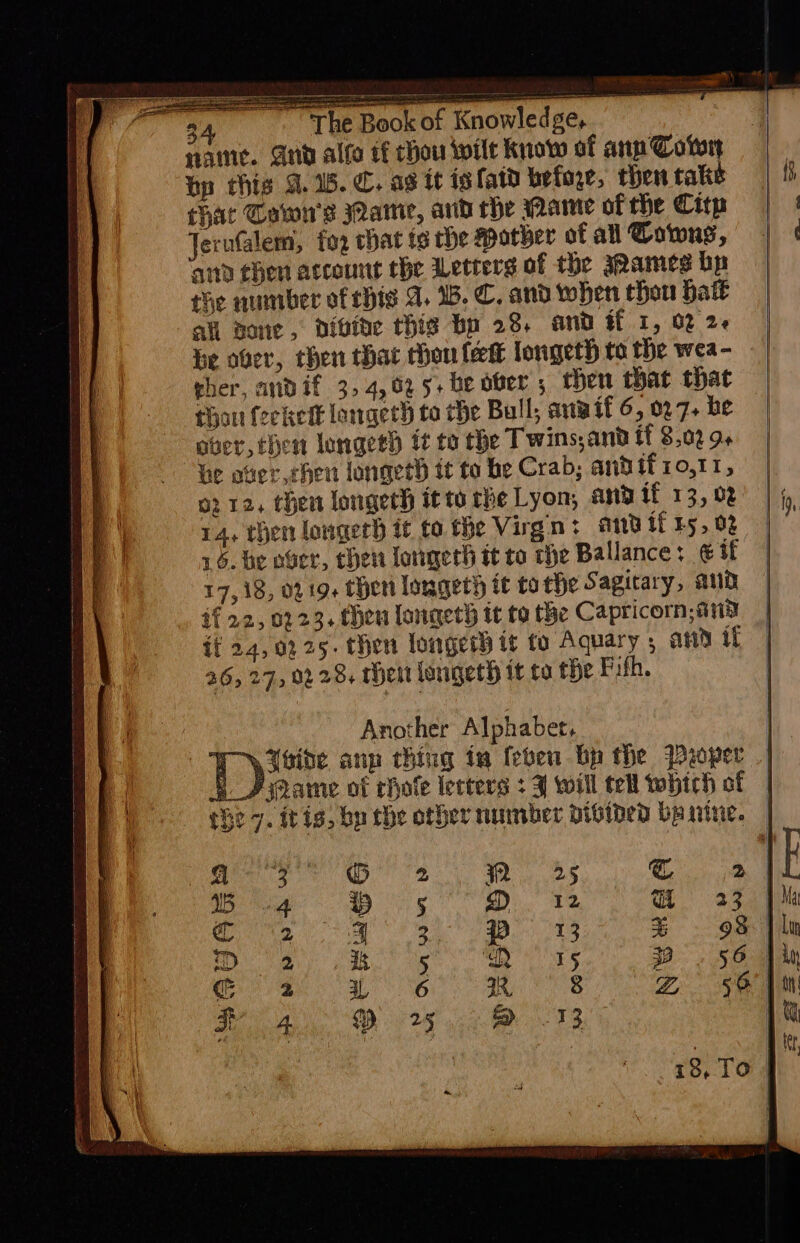 34 The Book of Knowledge,
name. And also if thou wilt know of any Town
by this A. B. C. as it is said before, then take
that Town's Name, and the Name of the City
Jerusalem, for that is the Mother of all Towns,
and then account the Letters of the Names by
the number of this A. B. C. and when thou hast
all done, divide this by 28. and if 1, or 2.
be over, then that thou seest longeth to the wea-
ther, and if 3, 4, or 5, be over; then that that
thou seekest langeth to the Bull; and if 6, or 7. be
over, then longeth it to the Twins; and if 8, or 9.
be over, then longeth it to be Crab; and if 10, 11,
or 12. then longeth it to the Lyon; and if 13, or
14. then longeth it to the Virgn: and if 15, or
16. be over, then longeth it to the Ballance: & if
17, 18, or 19. then longeth it to the Sagitary, and
if 22, or 23. then longeth it to the Capricorn; and
if 24, or 25. then longeth it to Aquary; and if
26, 27, or 28. then longeth it to the Fish.
Another Alphabet.
DIvide any thing in seven by the Proper
Name of those letters: I will tell which of
the 7. it is, by the other number divided by nine.
A 3 G 2 N 25 T 2
B 4 H 5 O 12 U 23
C 2 I 3 P 13 X 98
D 2 K 5 Q 15 Y 56
E 2 L 6 R 8 Z 56
F 4 M 25 S 13
18, To